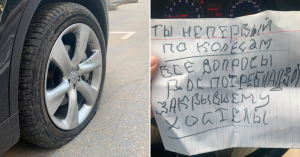 ТЫ НЕ ПЕРВЫЙ
ПО КОЛЕСАМ
ВСЕ ВОПРОСЫ
В РОСПОТРЕБНАДЗОР
К БЫВШЕМУ
ХОСТЕЛЫ